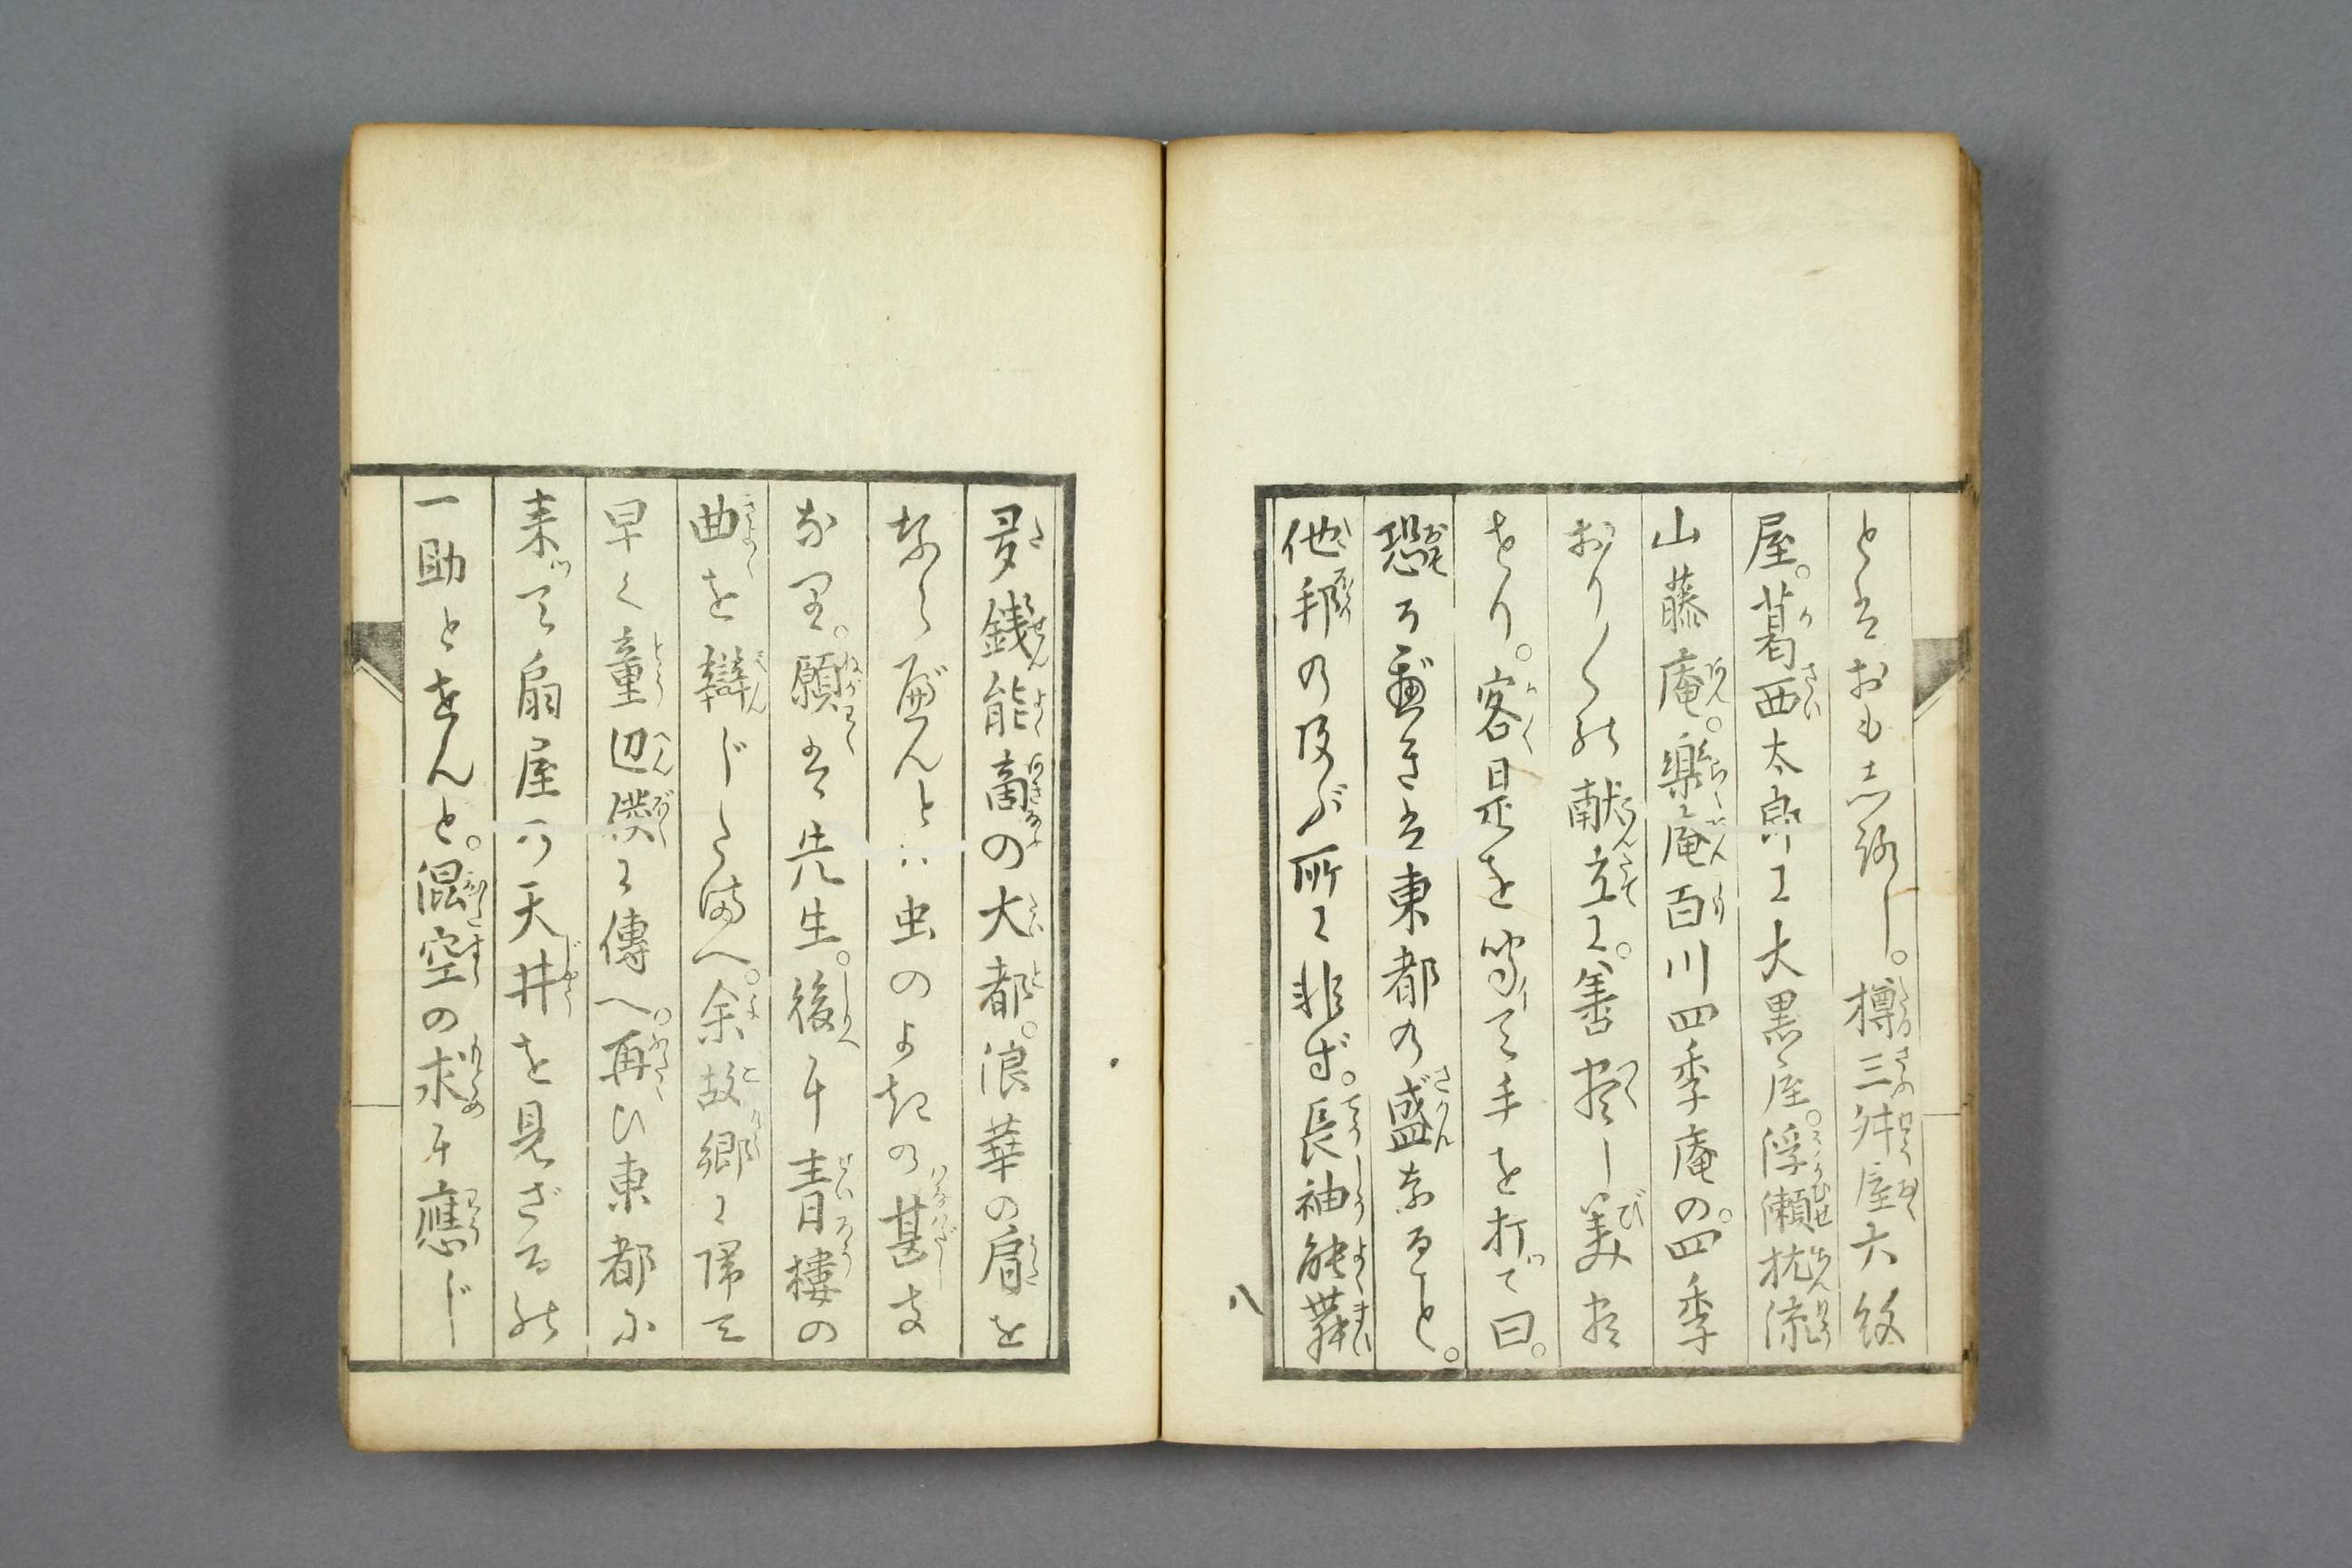 とはおもしろし。樽三舛屋六紋
屋。葛西太郎に大黒屋。浮瀬枕流
山藤庵。樂〻庵百川四季庵の。四季
おり〳〵の献立に。善尽し美尽
せり。客是を聞て手を打て曰。
恐る可きは東都の盛なること。
他邦の及ぶ所に非ず。長袖能舞
多銭能商の大都。浪華の肩を
ならべんとは虫のよきの甚き
なり。願くは先生。後に青樓の
曲を辯じたまへ。余故郷に帰て
早く童辺僕に傳へ。再ひ東都に
来て扇屋の天井を見ざるの
一助とせんと。混空の求に應じ
八